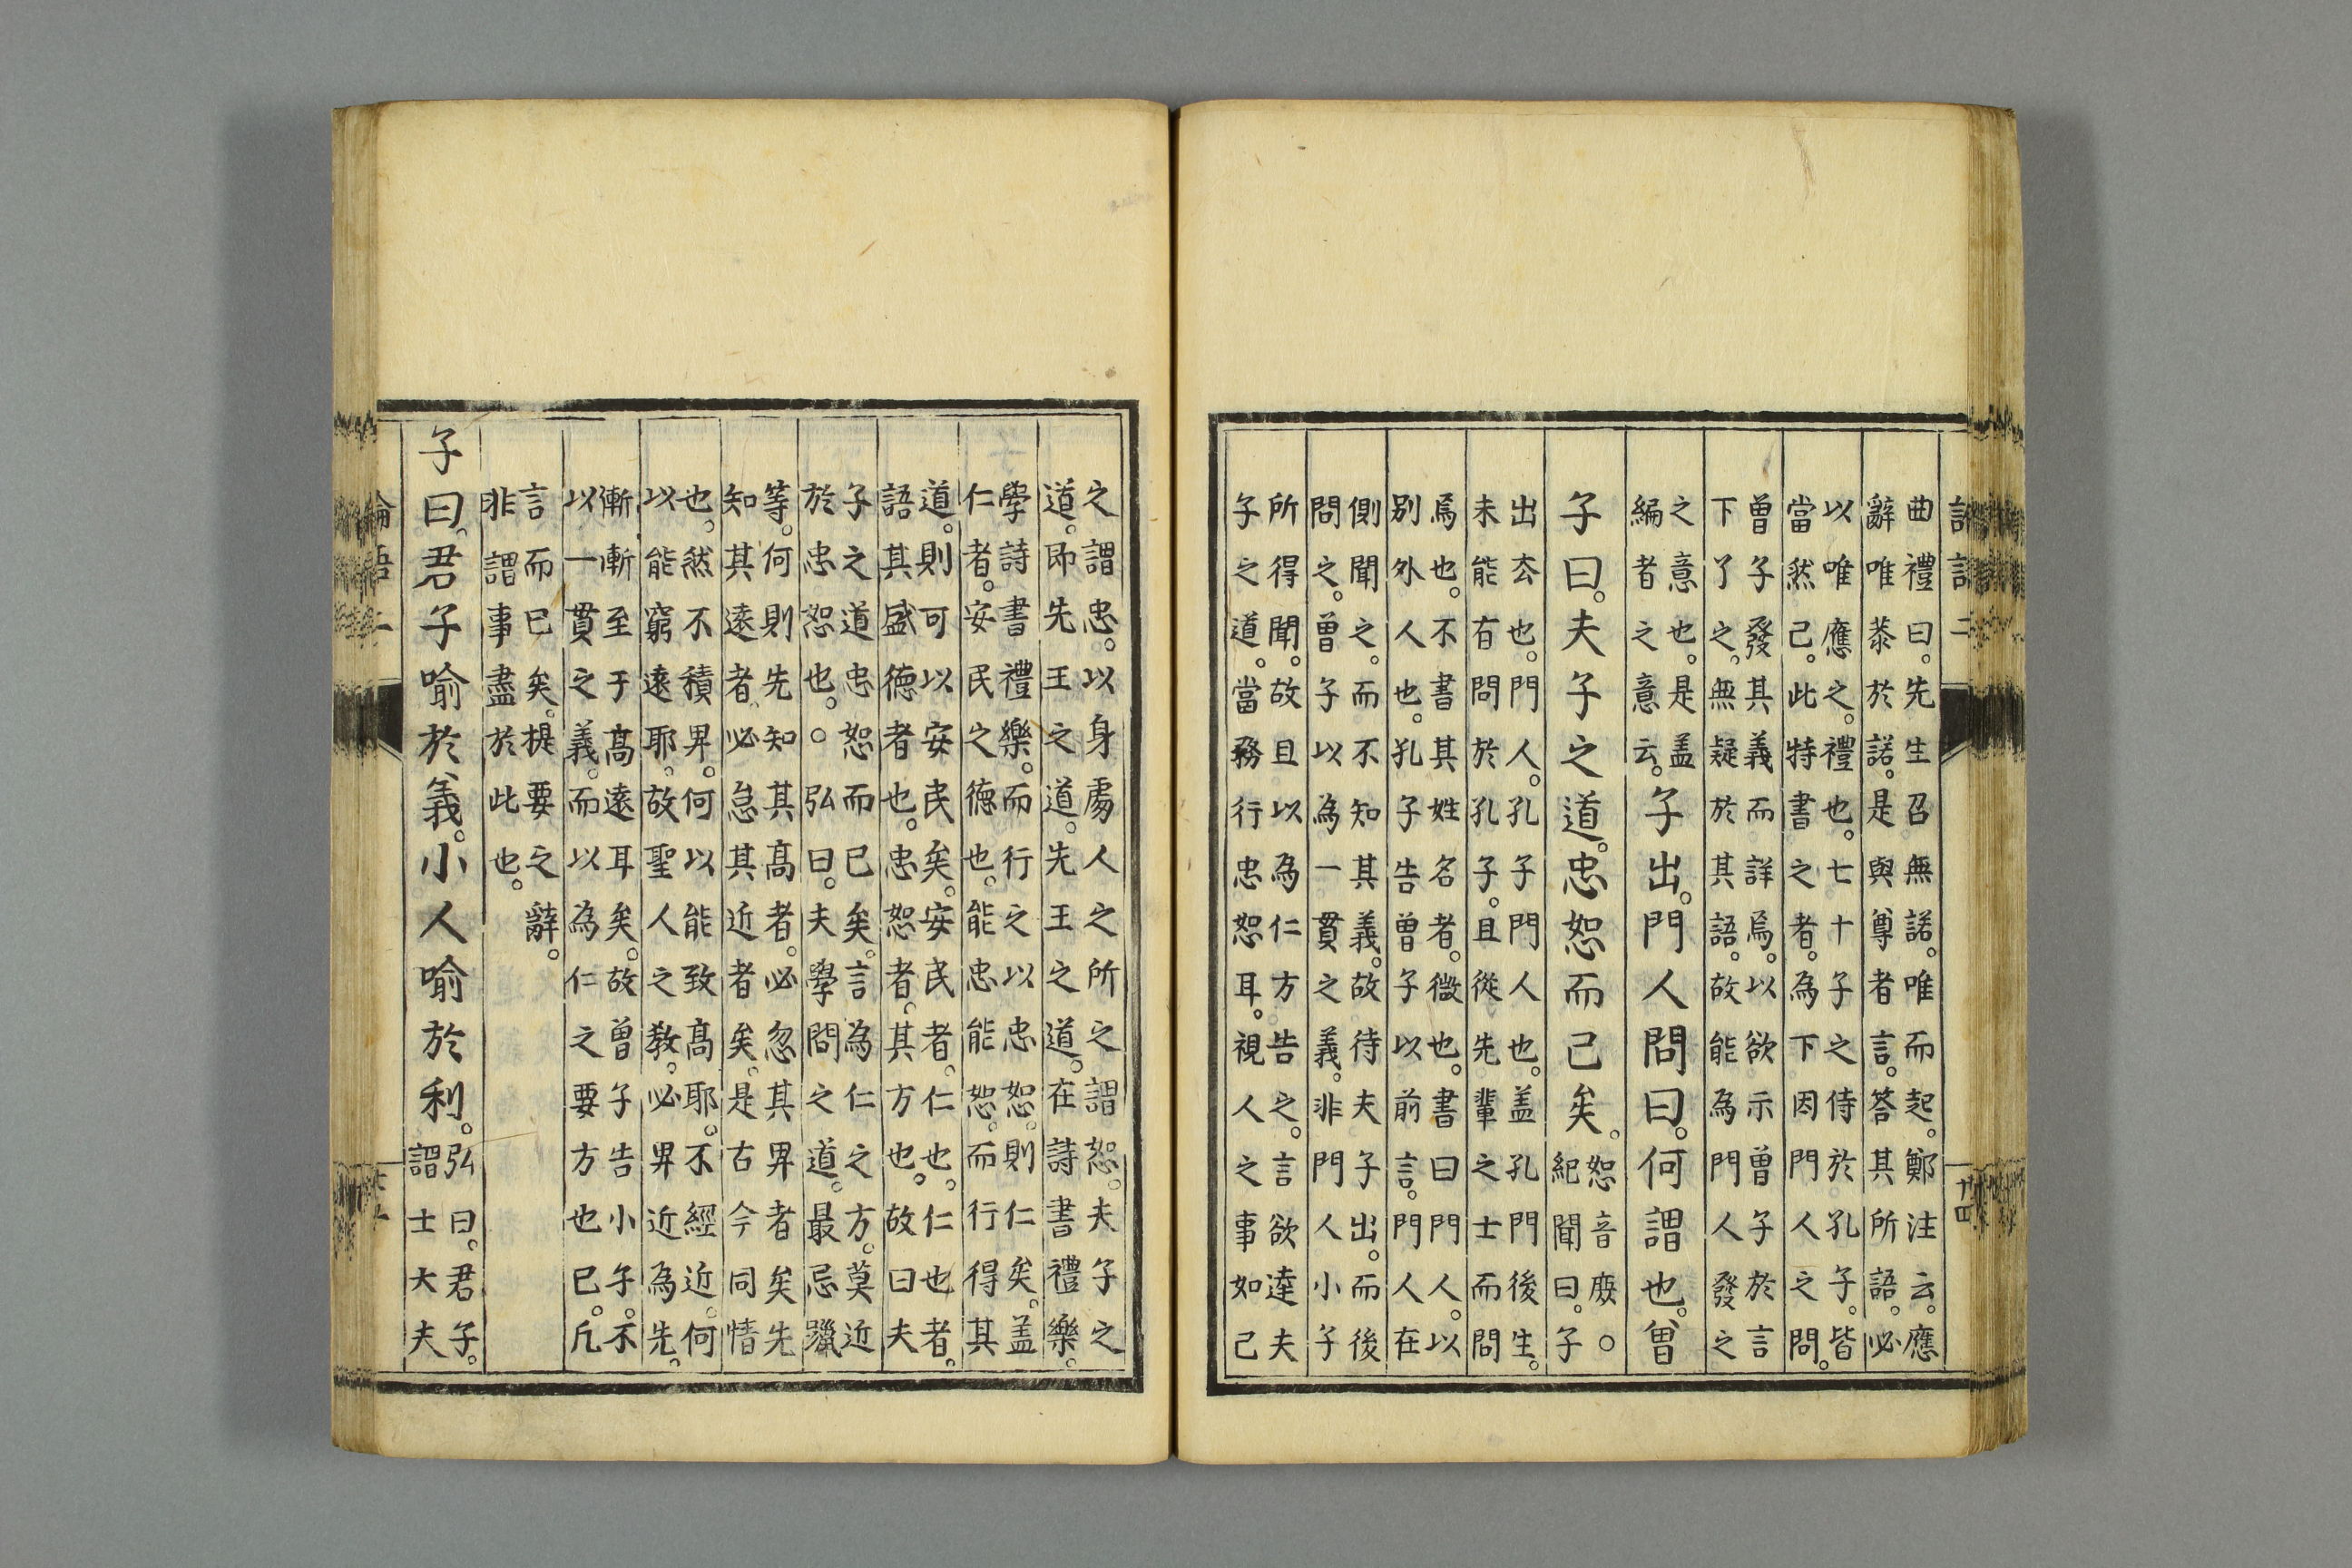 曲禮曰。先生召無諾。唯而起。鄭注云。應
辭唯恭於諾。是與尊者言。答其所語。必
以唯應之。禮也。七十子之侍於孔子。皆
當然已。此特書之者。為下因門人之問。
曾子發其義而詳焉。以欲示曾子於言
下了之。無疑於其語。故能為門人發之
之意也。是盖
編者之意云。子出。門人問曰。何謂也。曾
子曰。夫子之道。忠恕而已矣。
恕音庶○
紀聞曰。子
出厺也。門人。孔子門人也。盖孔門後生。
未能有問於孔子。且從先輩之士而問
焉也。不書其姓名者。微也。書曰門人。以
別外人也。孔子告曾子以前言。門人在
側聞之。而不知其義。故待夫子出。而後
問之。曾子以為一貫之義。非門人小子
所得聞。故且以為仁方告之。言欲達夫
子之道。當務行忠恕耳。視人之事如己
之謂忠。以身處人之所之謂恕。夫子之
道。即先王之道。先王之道。在詩書禮樂。
學詩書禮樂。而行之以忠恕。則仁矣。盖
仁者。安民之德也。能忠能恕。而行得其
道。則可以安民矣。安民者。仁也。仁也者。
語其盛德者也。忠恕者。其方也。故曰夫
子之道忠恕而已矣。言為仁之方。莫近
於忠恕也。○弘曰。夫學問之道。最忌躐
等。何則先知其高者。必忽其畀者矣先
知其遠者。必怠其近者矣。是古今同情
也。然不積畀。何以能致高耶。不經近。何
以能窮遠耶。故聖人之教。必畀近為先。
漸漸至于高遠耳矣。故曾子告小子。不
以一貫之義。而以為仁之要方也已。凡
言而已矣。提要之辭。
非謂事盡於此也。
子曰。君子喻於義。小人喻於利。
弘曰。君子。
謂士大夫